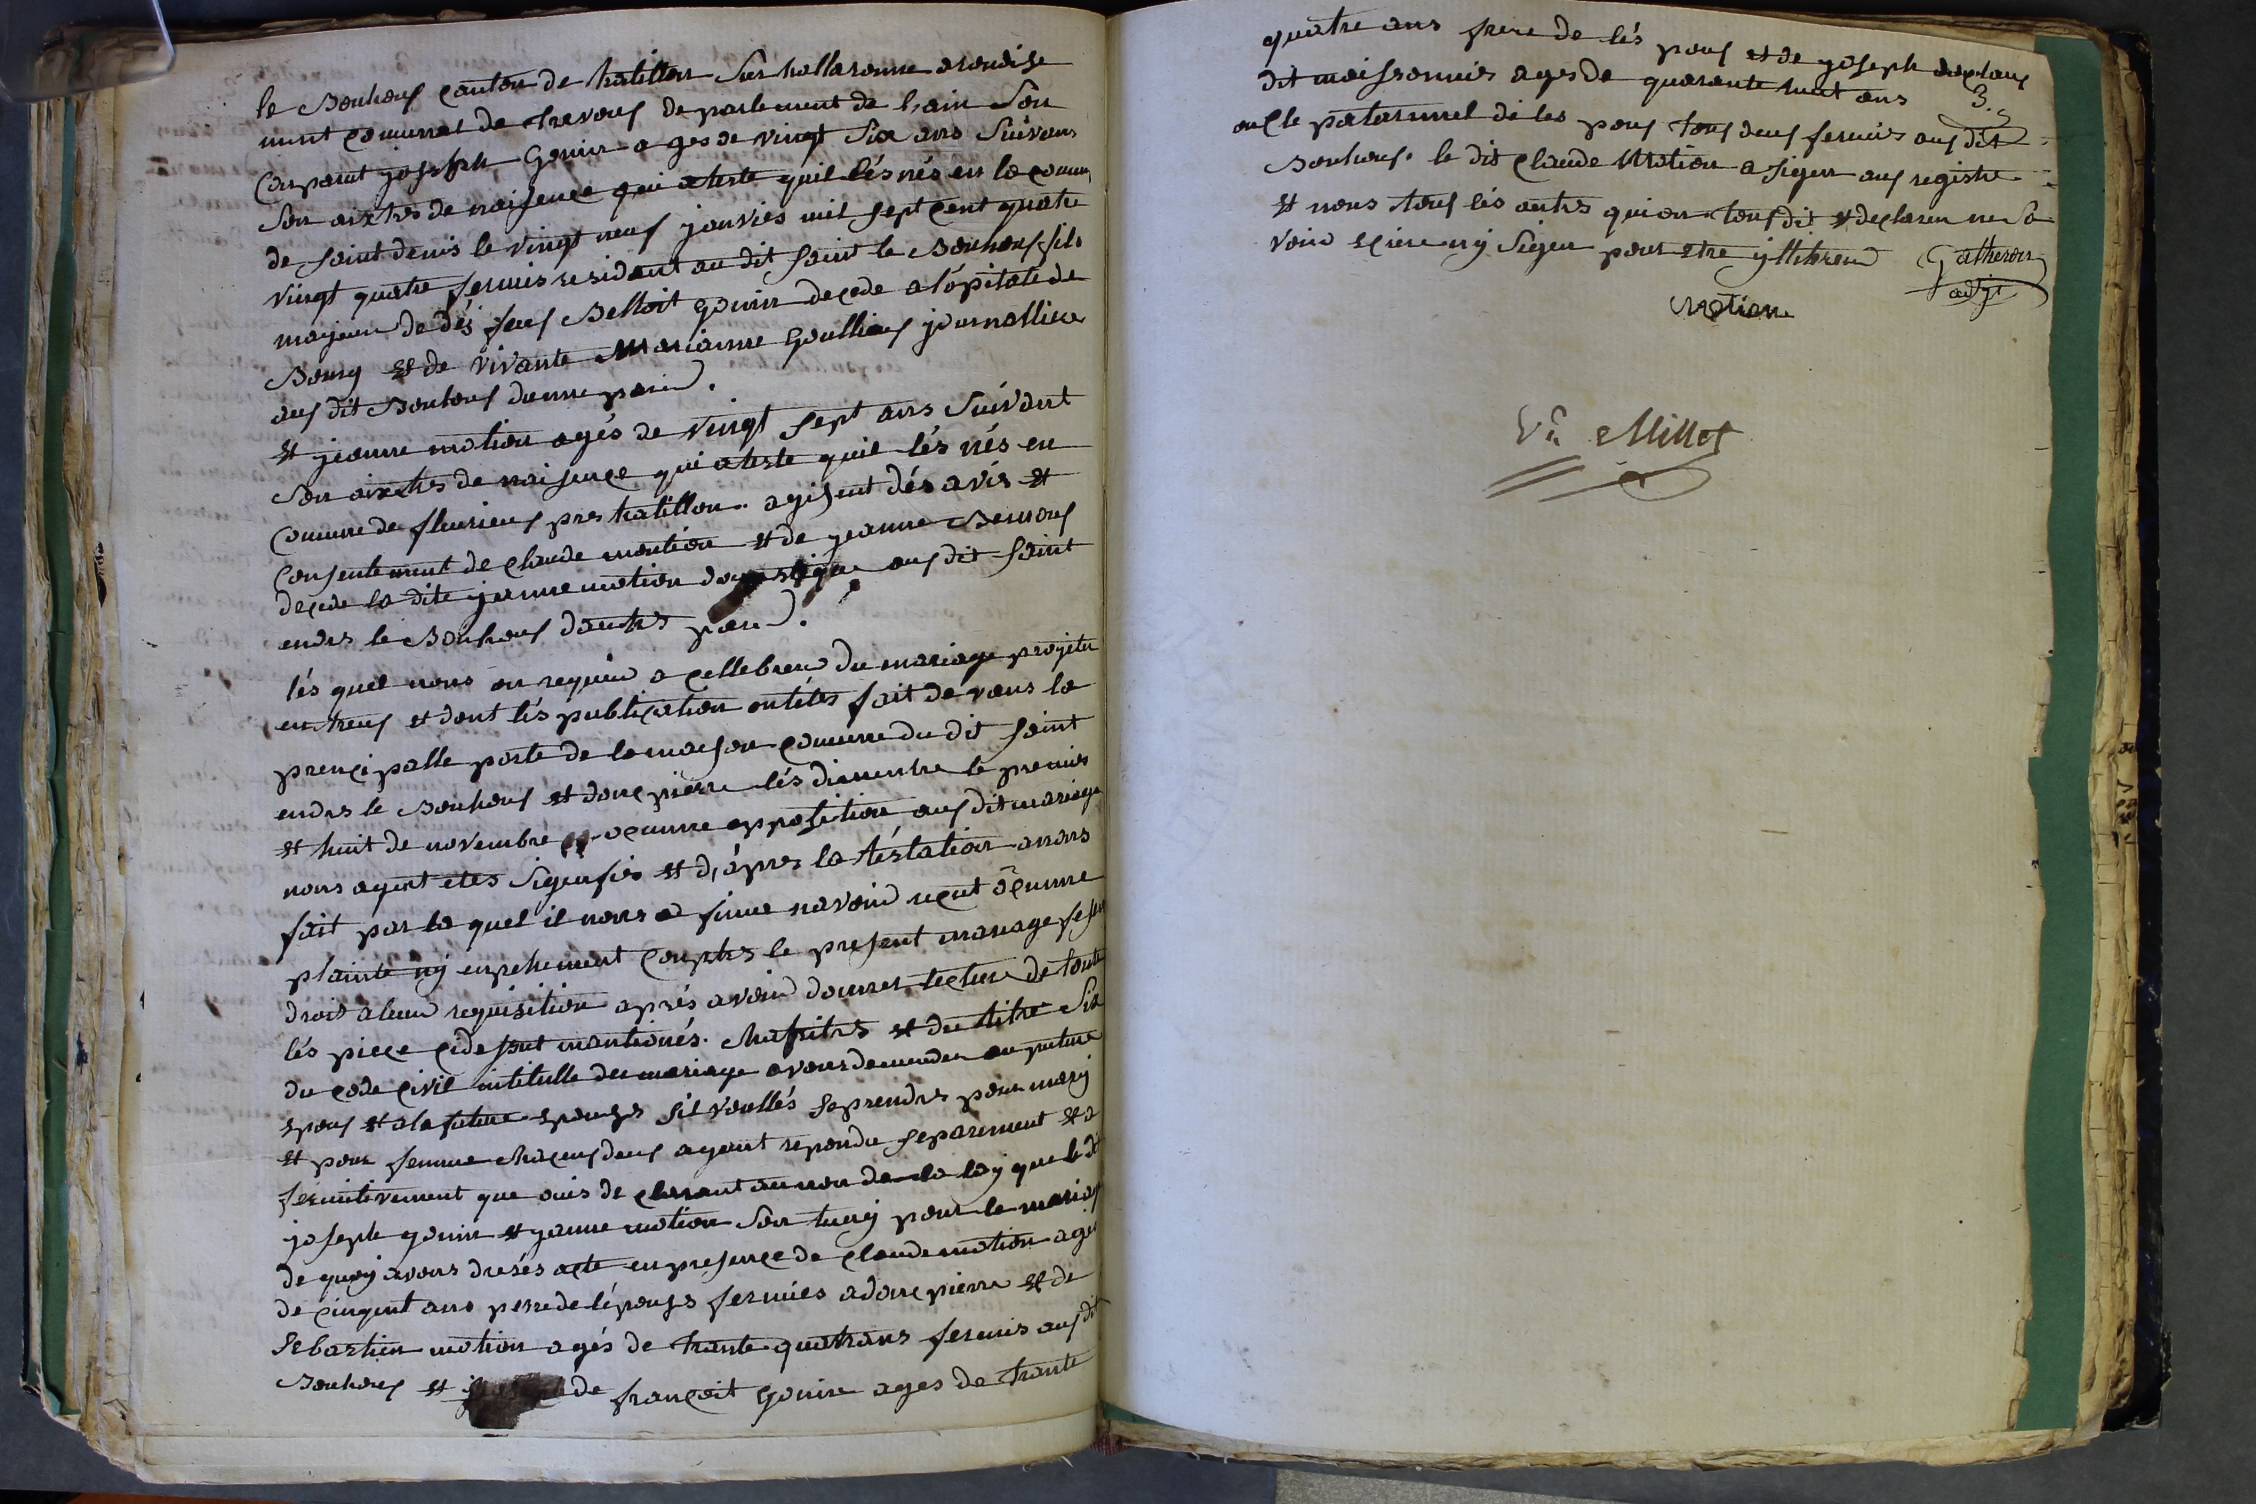 le Bouhouf canton de hatillon Sur hallaronne arondise
ment comunal de trevouf de partement de l,ain Son
Conparut joseph Gonin ages de vingt Six ans Suivans
Son aixtres de naisence qui ateste quil lés nés en la comun
de saint denis le vingt neuf janvies mil sept cent quatre
vingt quatre fermies residant au dit saint le Bouhouf fils
majeur de dés feuf Bettoit gonin decede a lópitale de
Bourg et de vivante Marianne Goullieuf journalliere
auf dit Bouhouf dunne pard.
et jeanne motion agés de vingt sept ans Suivant
Son aixtres de naisence qui ateste quil lés nés en
Comune de flurieuf pres hatillon agisent dés avis et
Consentement de claude motion et de jeanne Bernouf
decede la dite jeanne motion domestique auf dit saint
endres le Bouhouf dautres pard.
lés quel nous on requid a cellebrerd du mariage projeter
entreuf et dont lés publication ontétes fait devans la
prencipalle porte de la maison comune du dit saint
endres le Bouhouf et donc pierre lés dimentre le premier
et huit de novembre ocunne oppossition auf dit mariage
nous ayent etes Sigenfies et d,ápres la téstation anons
fait par la quel il nous a finne navoird recut ocunne
plainte ny enpehement Contres le present mariage fesen
droit aleurd requisition aprés avoird donner lecture de toute
lés piece cidesout mantionés. Chapitres et du titre Six
du code civil intitulle du mariage avons demender au future
epouf et a la future epouses sil voullés seprendres pour mary
et pour femme chacunf deuf ayent repondu separement et a
fermitivement que ouis de clarant au non de la loy que le dt
joseph gonin et yanne motion Son tuny pour le mariag
de quoy avons dresés acte en presence de claude motion agés
de cinqent ans perre de lépouses fermies a donc pierre et de
Sebastien motion agés de trante quatrans fermis auf dit
Bouhouf et de françoit gonin ages de trante
quatre ans frere de lés pouf et de joseph
dit moissonnier ages de quarante huit ans 3.
oncle patarnnel de les pouf touf deuf fermis auf dit
Bouhouf. le dit claude Motion a sigen auf registre
et nous touf lés autres qui on touf dit et declaren ne sa
voird ecrire ny sigen pour etre yllitrerd Gatheron
adjt
Motion
Vu Millet